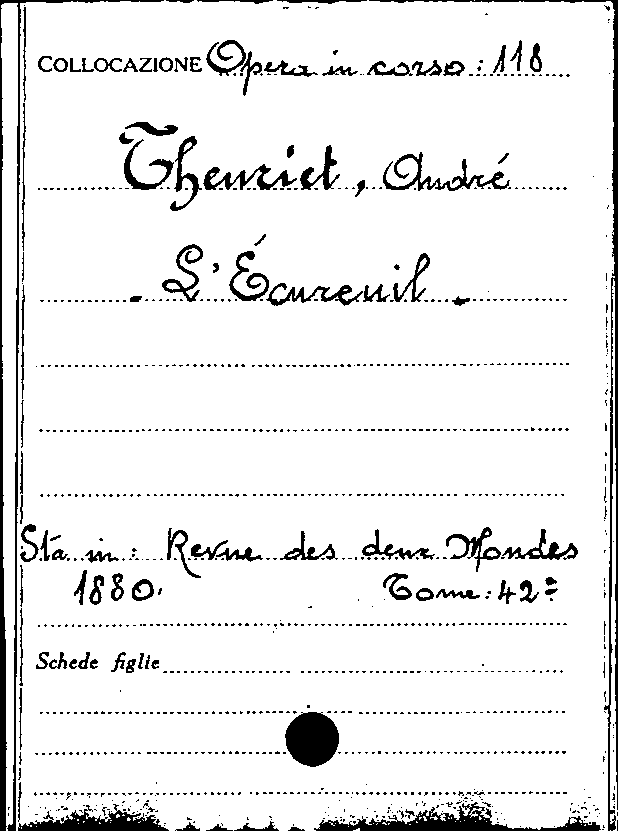 COLLOCAZIONE Opera in corso: 118
Theuriet, André
- L'Écureuil -
Sta in: Revue des deux Mondes
1880. Tome: 42º
Schede figlie